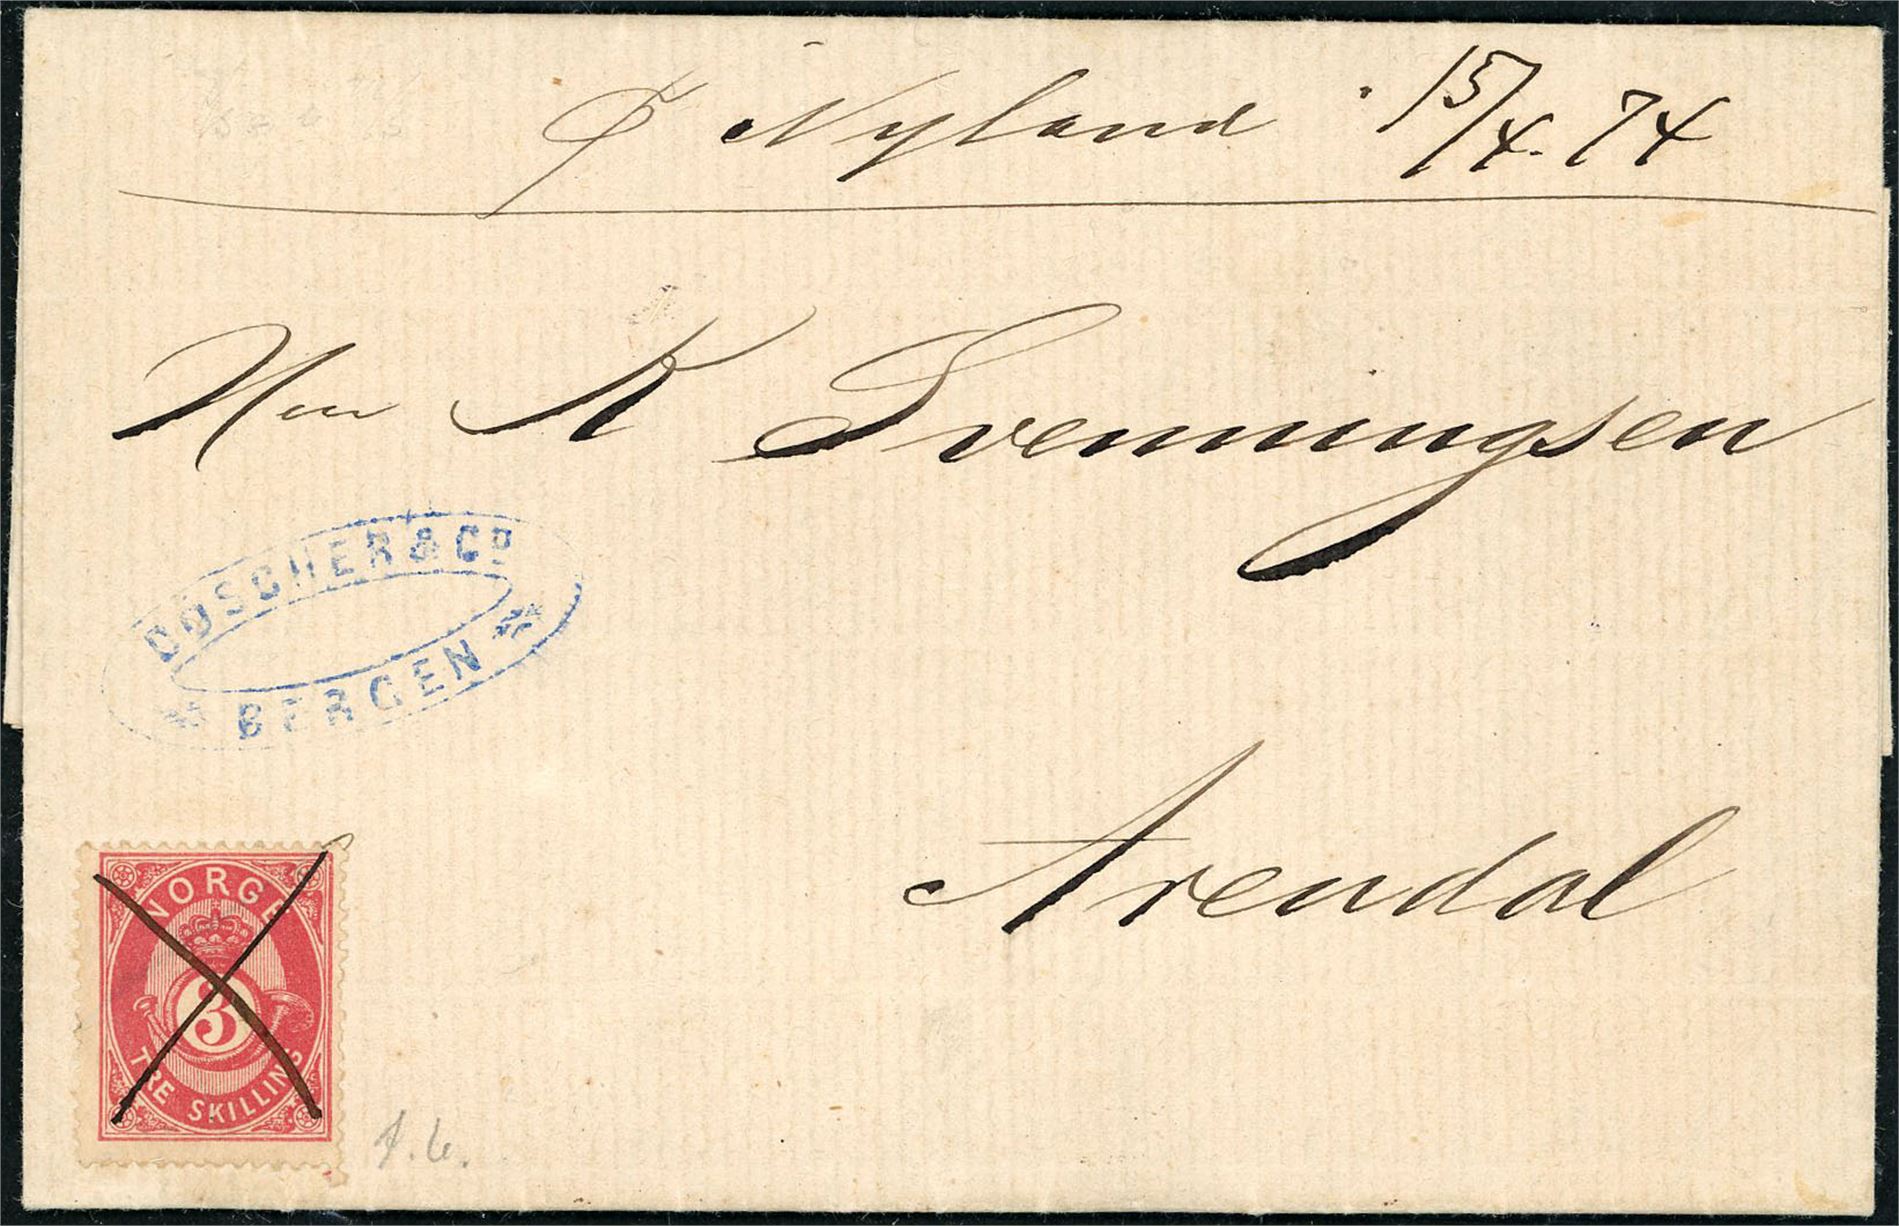 p Nyland 15/4.74
Herr K Svenningsen
DØSCHER & Co
BERGEN
Arendal
NORGE
3
TRE SKILLING